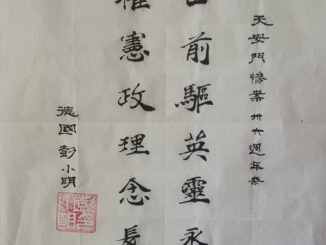 天安門慘案卅六週年祭
前驅英靈永
權憲政理念長
德國彭小明